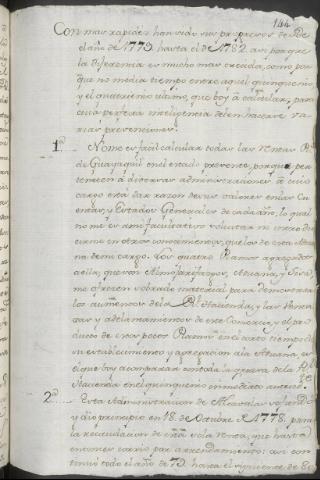 144
Con mas rapidez han sido sus progresos desde
el año de 1779 hasta el de 1782. asi porque
la diferencia es mucho mas crecida, como por
que no media tiempo entre aquel quinquenio
y el quatrienio ultimo, que boy à calcular, para
cuia perfecta inteligencia deben hacerse va-
rias prevenciones.
1ª No me es facil calcular todas las Rentas Rˢ
de Guayaquil en el estado presente, porque per-
tenecen à diversas administraciones à cuio
cargo està dar razon de sus valores en las Cu-
entas, y Estados Generales de cada año, lo qual
no me es facultativo voluntar ni introdu-
cirme en otros conocimientos, que los de esta Adua-
na de mi cargo. Los quatro Ramos agregados
à ella, que son Almojarifazgos, Alcavala, y
me ofrecen sobrado material para demonstrar
los aumentos de la Rˡ Hacienda, y las
y adelantamientos de este Comercio, y el pro-
ducto de estos pocos Ramos en el corto tiempo de
su establecimiento y agregacion à la Aduana, es
el que boy à comparar con toda la gruesa de la Rˡ
Hacienda en el quinquenio inmediato anterior.
2ª Esta Administracion de Alcavalas se fundò
y diò principio en 18 de Octubre de 1778. para
la recaudacion de esta sola Renta, que hasta
entonces corriò por arrendamiento: asi con-
tinuò todo el año de 79. hasta el siguiente de 80